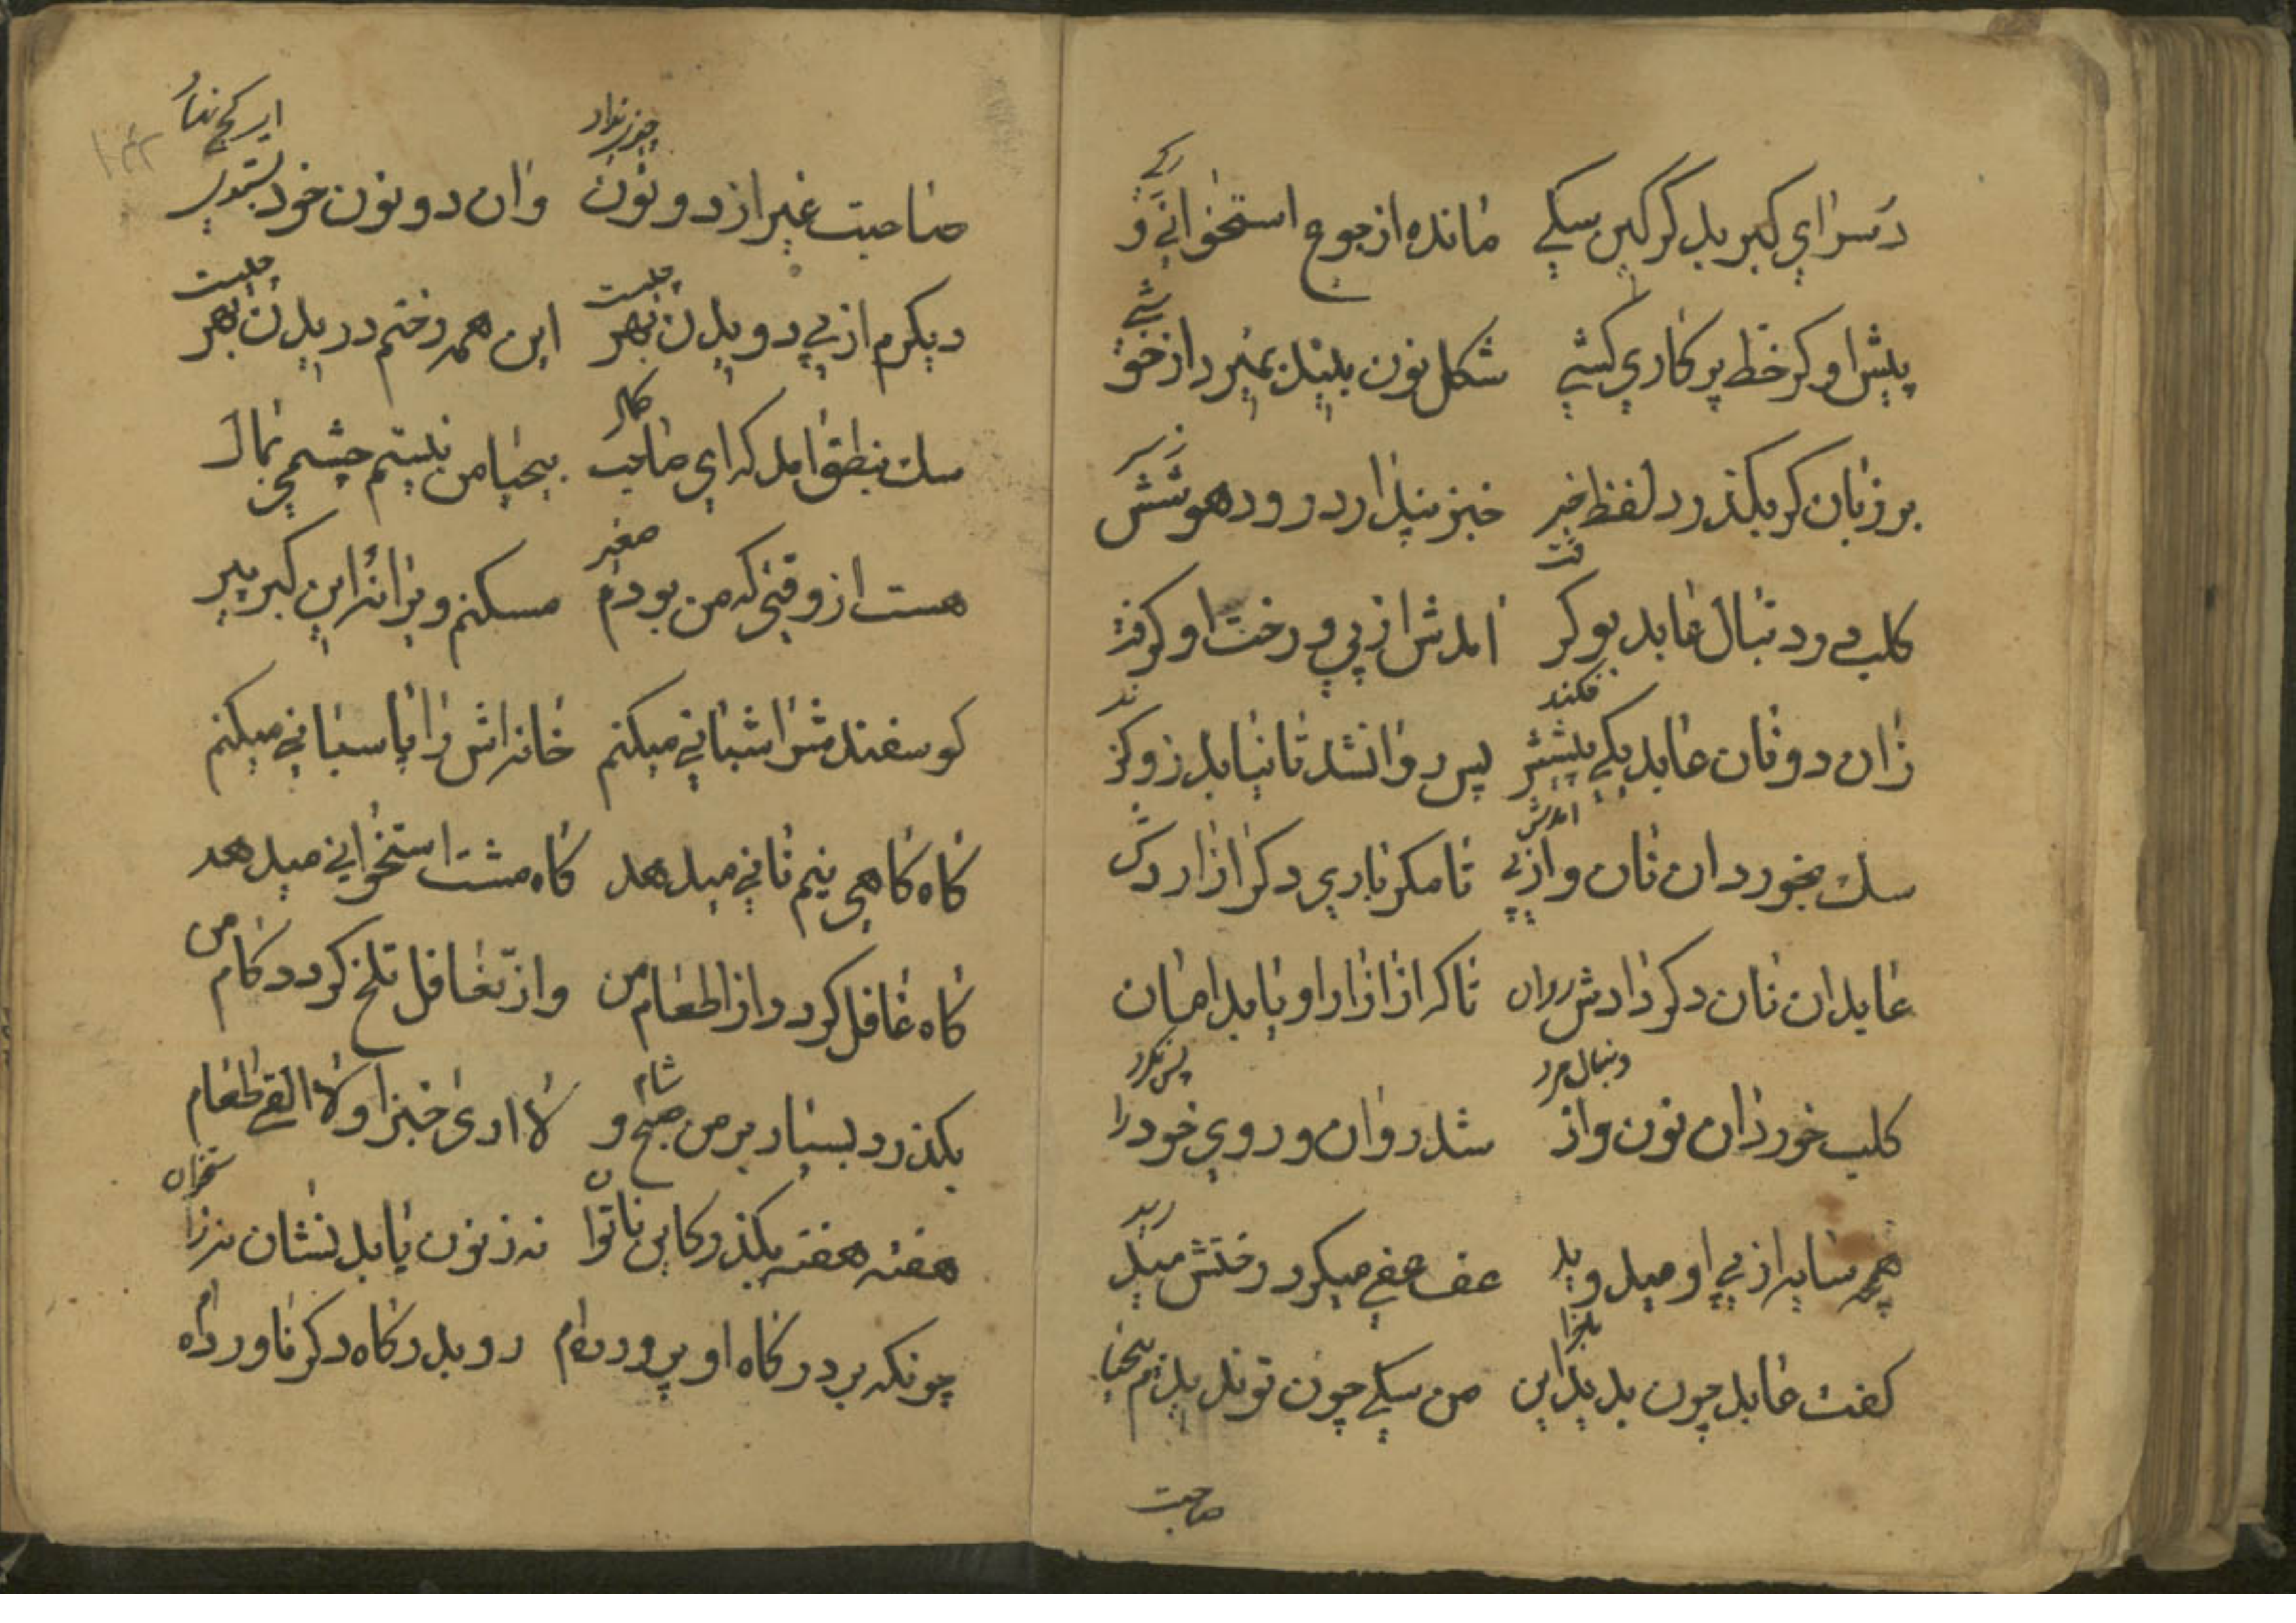 در سرای گبر بد گرگین سگی مانده از جوع استخوانی و رگی
پیش او گر خط پرگاری کشی شکل نون بیند بمیرد از خوشی
بر زبان گر بگذرد لفظ خبر خبز پندارد رود هوشش ز سر
کلب در دنبال عابد بو گرفت آمدش از پی و رخت او گرفت
زان دو نان عابد یکی پیشش فکند پس روان شد تا نیابد زو گزند
سگ بخورد آن نان و از پی آمدش تا مگر باری دگر آزاردش
عابد آن نان دگر دادش روان تا که از آزار او یابد امان
کلب خورد آن نون و از دنبال مرد شد روان و روی خود را پس نکرد
همچو سایه از پی او میدوید عف عفی میکرد و رختش میدرید
گفت عابد چون بدید این ماجرا من سگی چون تو ندیدم بیحیا
صاحبت
صاحبت غیر از دو نون چیزی نداد وان دو نون خود بستدی ای کج نهاد
دیگرم از پی دویدن بهر چیست این همه رختم دریدن بهر چیست
سگ بنطق آمد که ای صاحب کمال بیحیا من نیستم چشمی بمال
هست از وقتی که من بودم صغیر مسکنم ویرانهٔ این گبر پیر
گوسفندش را شبانی میکنم خانه‌اش را پاسبانی میکنم
گاه گاهی نیم نانی میدهد گاه مشت استخوانی میدهد
گاه غافل گردد از اطعام من وز تغافل تلخ گردد کام من
بگذرد بسیار بر من صبح و شام لا اری خبزا ولا القی طعام
هفته هفته بگذرد کاین ناتوان نه ز نون یابد نشان نه ز استخوان
چونکه بر درگاه او پرورده‌ام رو بدرگاه دگر ناورده‌ام